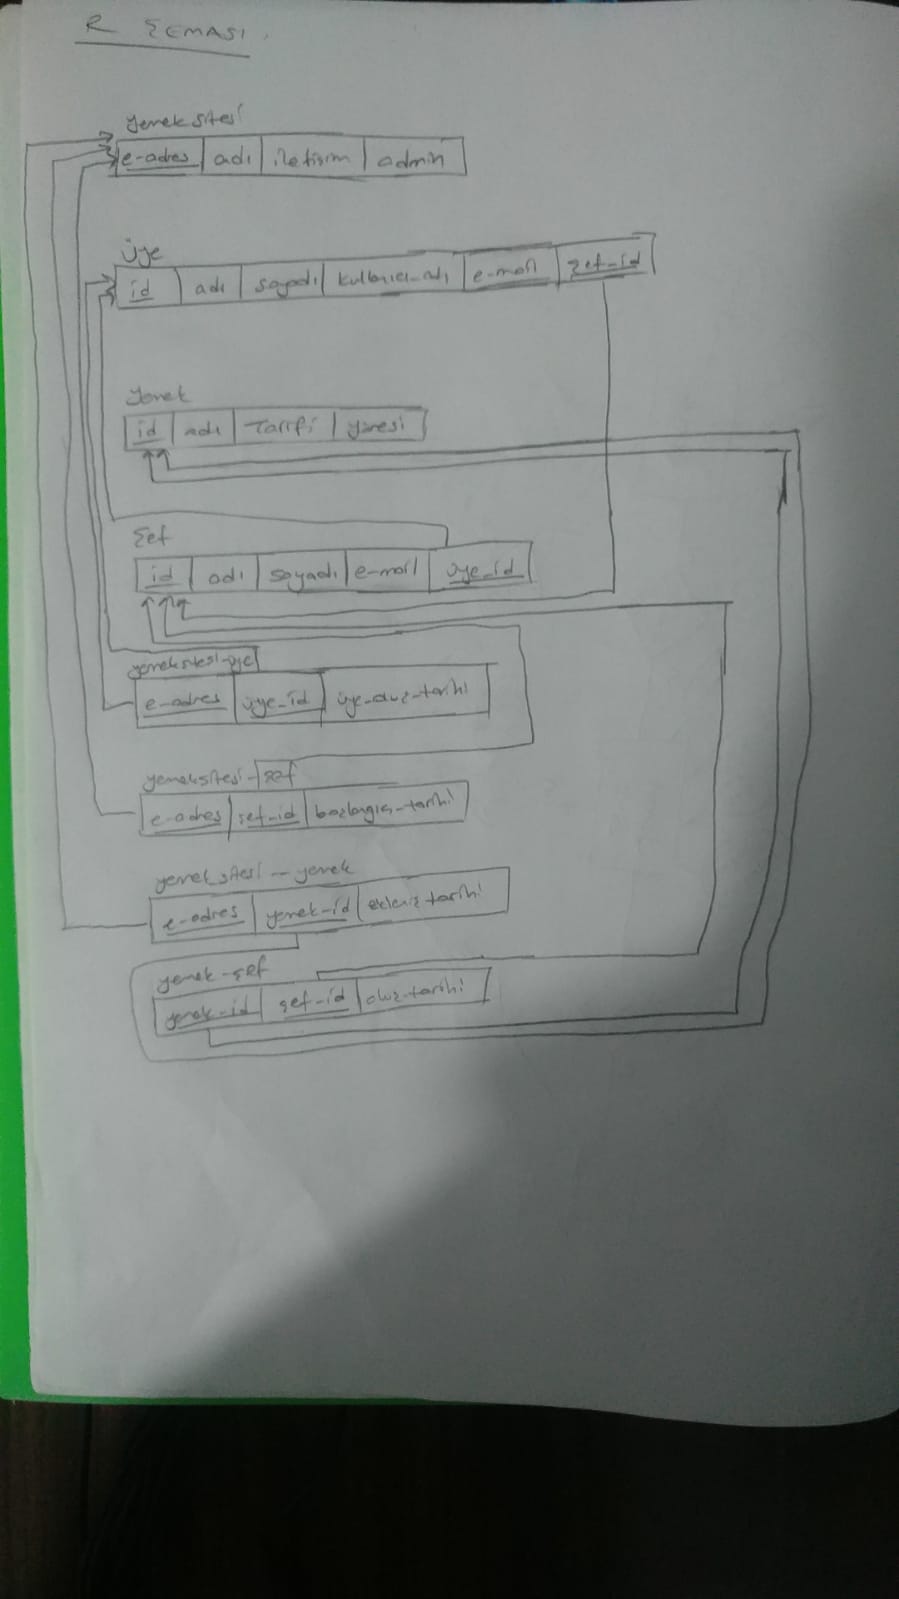 R ŞEMASI.
yemek sitesi
e-adres adı iletişim admin
üye
id adı soyadı kullanıcı_adı e-mail şef_id
yemek
id adı Tarifi yöresi
Şef
id adı soyadı e-mail üye_id
yemeksitesi-üye
e-adres üye_id üye_oluş_tarihi
yemeksitesi-şef
e-adres şef_id başlangıç_tarihi
yemek sitesi - yemek
e-adres yemek-id ekleniş tarihi
yemek-şef
yemek-id şef-id oluş-tarihi